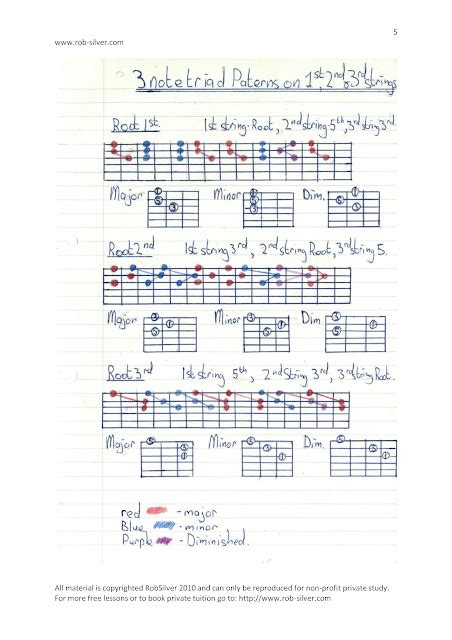 5
www.rob-silver.com
3 note triad Paterns on 1st, 2nd & 3rd strings
Root 1st. 1st string-Root, 2nd string-5th, 3rd string 3rd.
Major Minor Dim.
Root 2nd 1st string 3rd, 2nd string Root, 3rd string 5.
Major Minor Dim
Root 3rd 1st string 5th, 2nd String 3rd, 3rd string Root.
Major Minor Dim.
red - major
Blue - minor
Purple - Diminished.
All material is copyrighted RobSilver 2010 and can only be reproduced for non-profit private study.
For more free lessons or to book private tuition go to: http://www.rob-silver.com